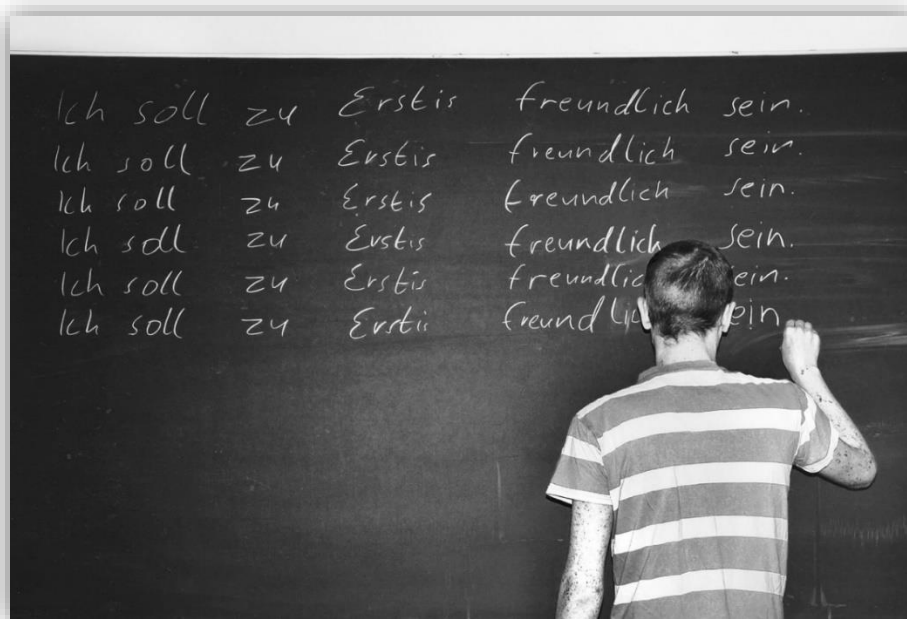 Ich soll zu Erstis freundlich sein.
Ich soll zu Erstis freundlich sein.
Ich soll zu Erstis freundlich sein.
Ich soll zu Erstis freundlich sein.
Ich soll zu Erstis freundlic ein.
Ich soll zu Erstis freundlic ein